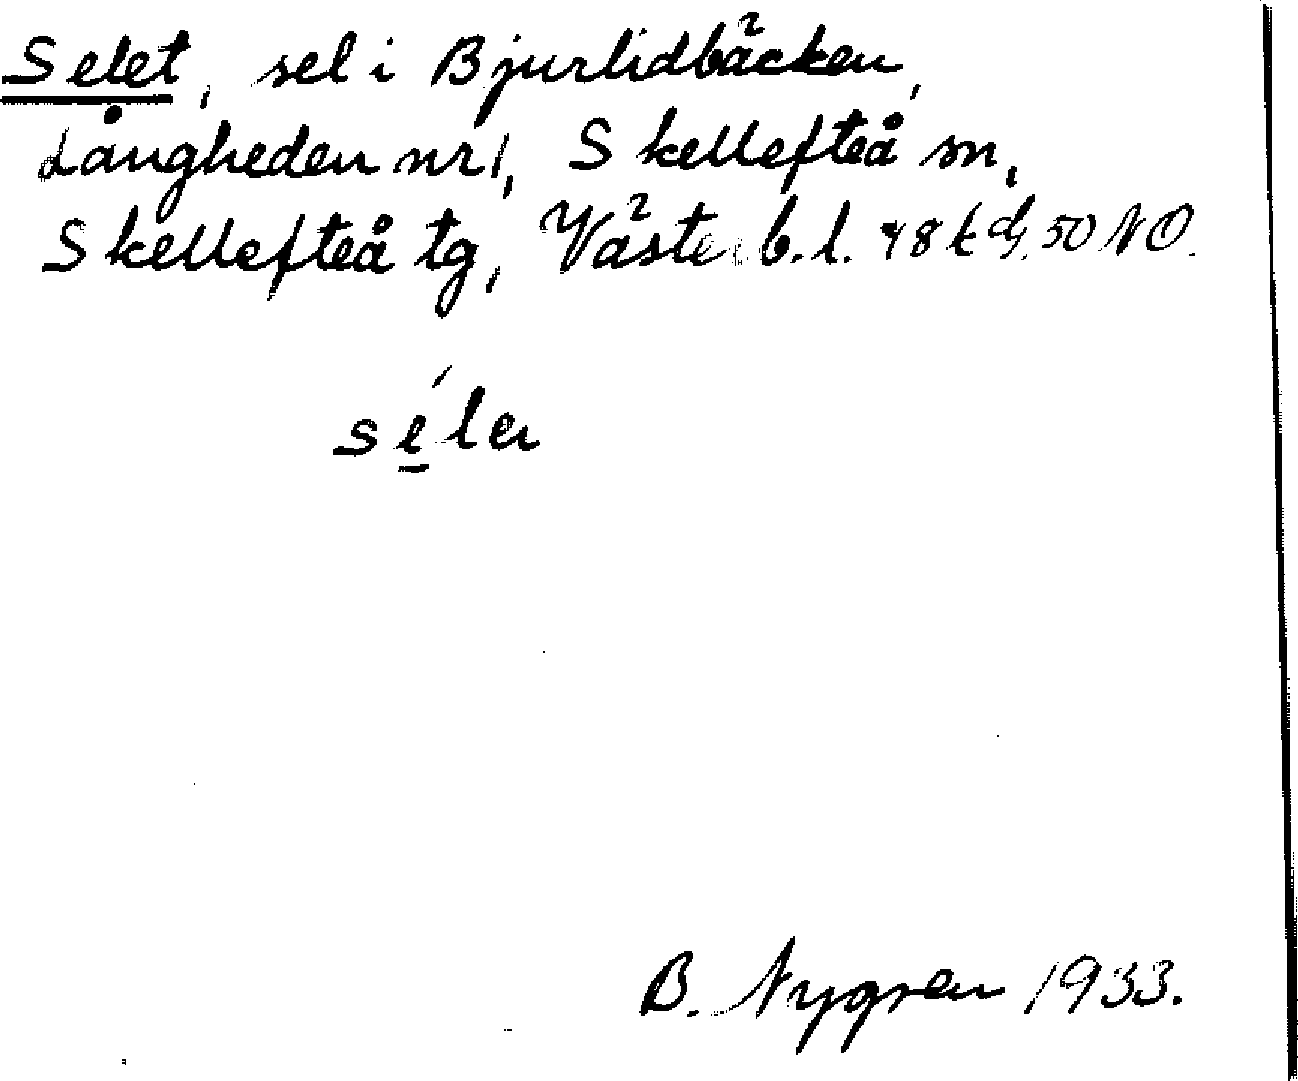 Selet, sel i Bjurlidbäcken,
Långheden nr 1, Skellefteå sn,
Skellefteå tg, Västerb. l. 48 50 NO.
B. Nygren 1933.